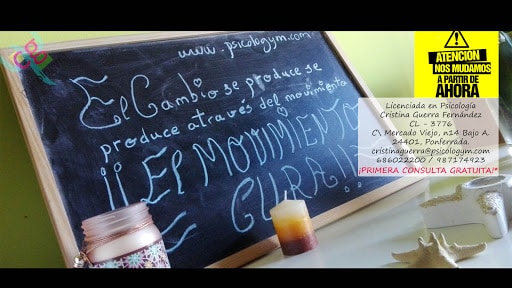 www.psicologym.com
El Cambio se produce se
produce através del movimiento
¡¡El MOVIMIENTO
SE CURA!!
ATENCION
NOS MUDAMOS
A PARTIR DE
AHORA
Licenciada en Psicología
Cristina Guerra Fernández
CL - 3776
C\ Mercado Viejo, n14 Bajo A.
24401, Ponferrada.
cristinaguerra@psicologym.com
686022200 / 987174923
¡PRIMERA CONSULTA GRATUITA!*